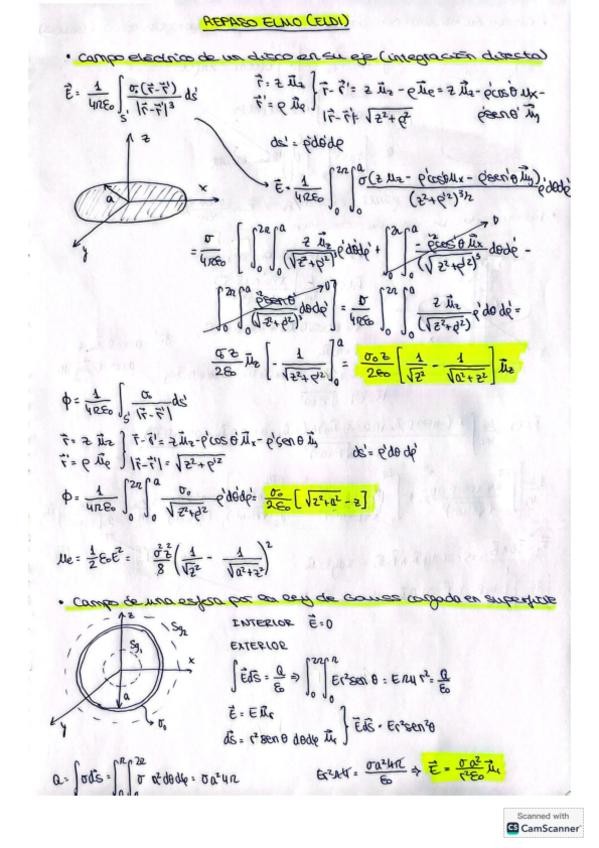 REPASO ELMO (ELDI)
• Campo eléctrico de un disco en su eje (integración directa)
E⃗ = 1/4πε₀ ∫_S' σ(r⃗-r⃗')/|r⃗-r⃗'|³ ds'
r⃗ = z u⃗z } r⃗-r⃗' = z u⃗z - ρ u⃗ρ = z u⃗z - ρ'cosθ u⃗x -
r⃗' = ρ u⃗ρ } |r⃗-r⃗'| = √(z²+ρ²) ρ'senθ' u⃗y
ds' = ρ'dθdρ
z
a
x
y
E⃗ = 1/4πε₀ ∫₀^2π ∫₀^a σ(z u⃗z - ρ'cosθ u⃗x - ρ'senθ u⃗y)/(z²+ρ'²)^3/2 ρ'dθdρ'
= σ/4πε₀ [∫₀^2π ∫₀^a z u⃗z/(√(z²+ρ'²))³ ρ'dθdρ' + ∫₀^2π ∫₀^a -ρ'²cosθ u⃗x/(√(z²+ρ'²))³ dθdρ' - 0
∫₀^2π ∫₀^a ρ'²senθ'/(√(z²+ρ'²))³ dθdρ' 0] = σ/4πε₀ ∫₀^2π ∫₀^a z u⃗z/(√(z²+ρ'²))³ ρ'dθdρ' =
σz/2ε₀ u⃗z [-1/√(z²+ρ'²)]₀^a = σ₀z/2ε₀ [1/√z² - 1/√(a²+z²)] u⃗z
ϕ = 1/4πε₀ ∫_S' σ₀/|r⃗-r⃗'| ds'
r⃗ = z u⃗z } r⃗-r⃗' = z u⃗z - ρ'cosθ u⃗x - ρ'senθ u⃗y
r⃗' = ρ u⃗ρ } |r⃗-r⃗'| = √(z²+ρ'²) ds' = ρ'dθdρ'
ϕ = 1/4πε₀ ∫₀^2π ∫₀^a σ₀/√(z²+ρ'²) ρ'dθdρ' = σ₀/2ε₀ [√(z²+a²) - z]
μe = 1/2 ε₀E² = σ²z²/8 (1/√z² - 1/√(a²+z²))²
• Campo de una esfera por la ley de Gauss cargada en superficie
z
Sg₂
Sg₁
x
a
y
σ₀
INTERIOR E⃗=0
EXTERIOR
∫E⃗ds⃗ = Q/ε₀ ⇒ ∫₀^2π ∫₀^π Er²senθ = E4π r² = Q/ε₀
E⃗ = E u⃗r
ds⃗ = r²senθ dθdφ u⃗r } E⃗ds⃗ = Er²sen²θ
Q = ∫σds⃗ = ∫₀^π ∫₀^2π σ a²dθdφ = σa²4π
Er²4π = σa²4π/ε₀ ⇒ E⃗ = σa²/r²ε₀ u⃗r
Scanned with
CS CamScanner